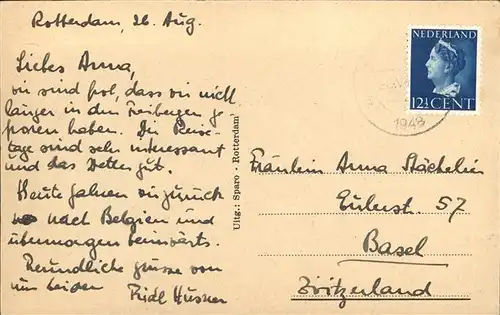 Rotterdam, 26 Aug.
Liebes Anna,
wir sind froh, dass wir nicht
länger in den Freibergen ge
froren haben. Die Reise-
tage sind sehr interessant
und das Wetter gut.
Heute fahren wir zurück
nach Belgien und
übermorgen heimwärts.
Freundliche Grüsse von
uns beiden
Uitg.: Sparo - Rotterdam
NEDERLAND
12½ CENT
1948
Fräulein Anna Stächelin
Eulerst. 57
Basel
Zwitzerland